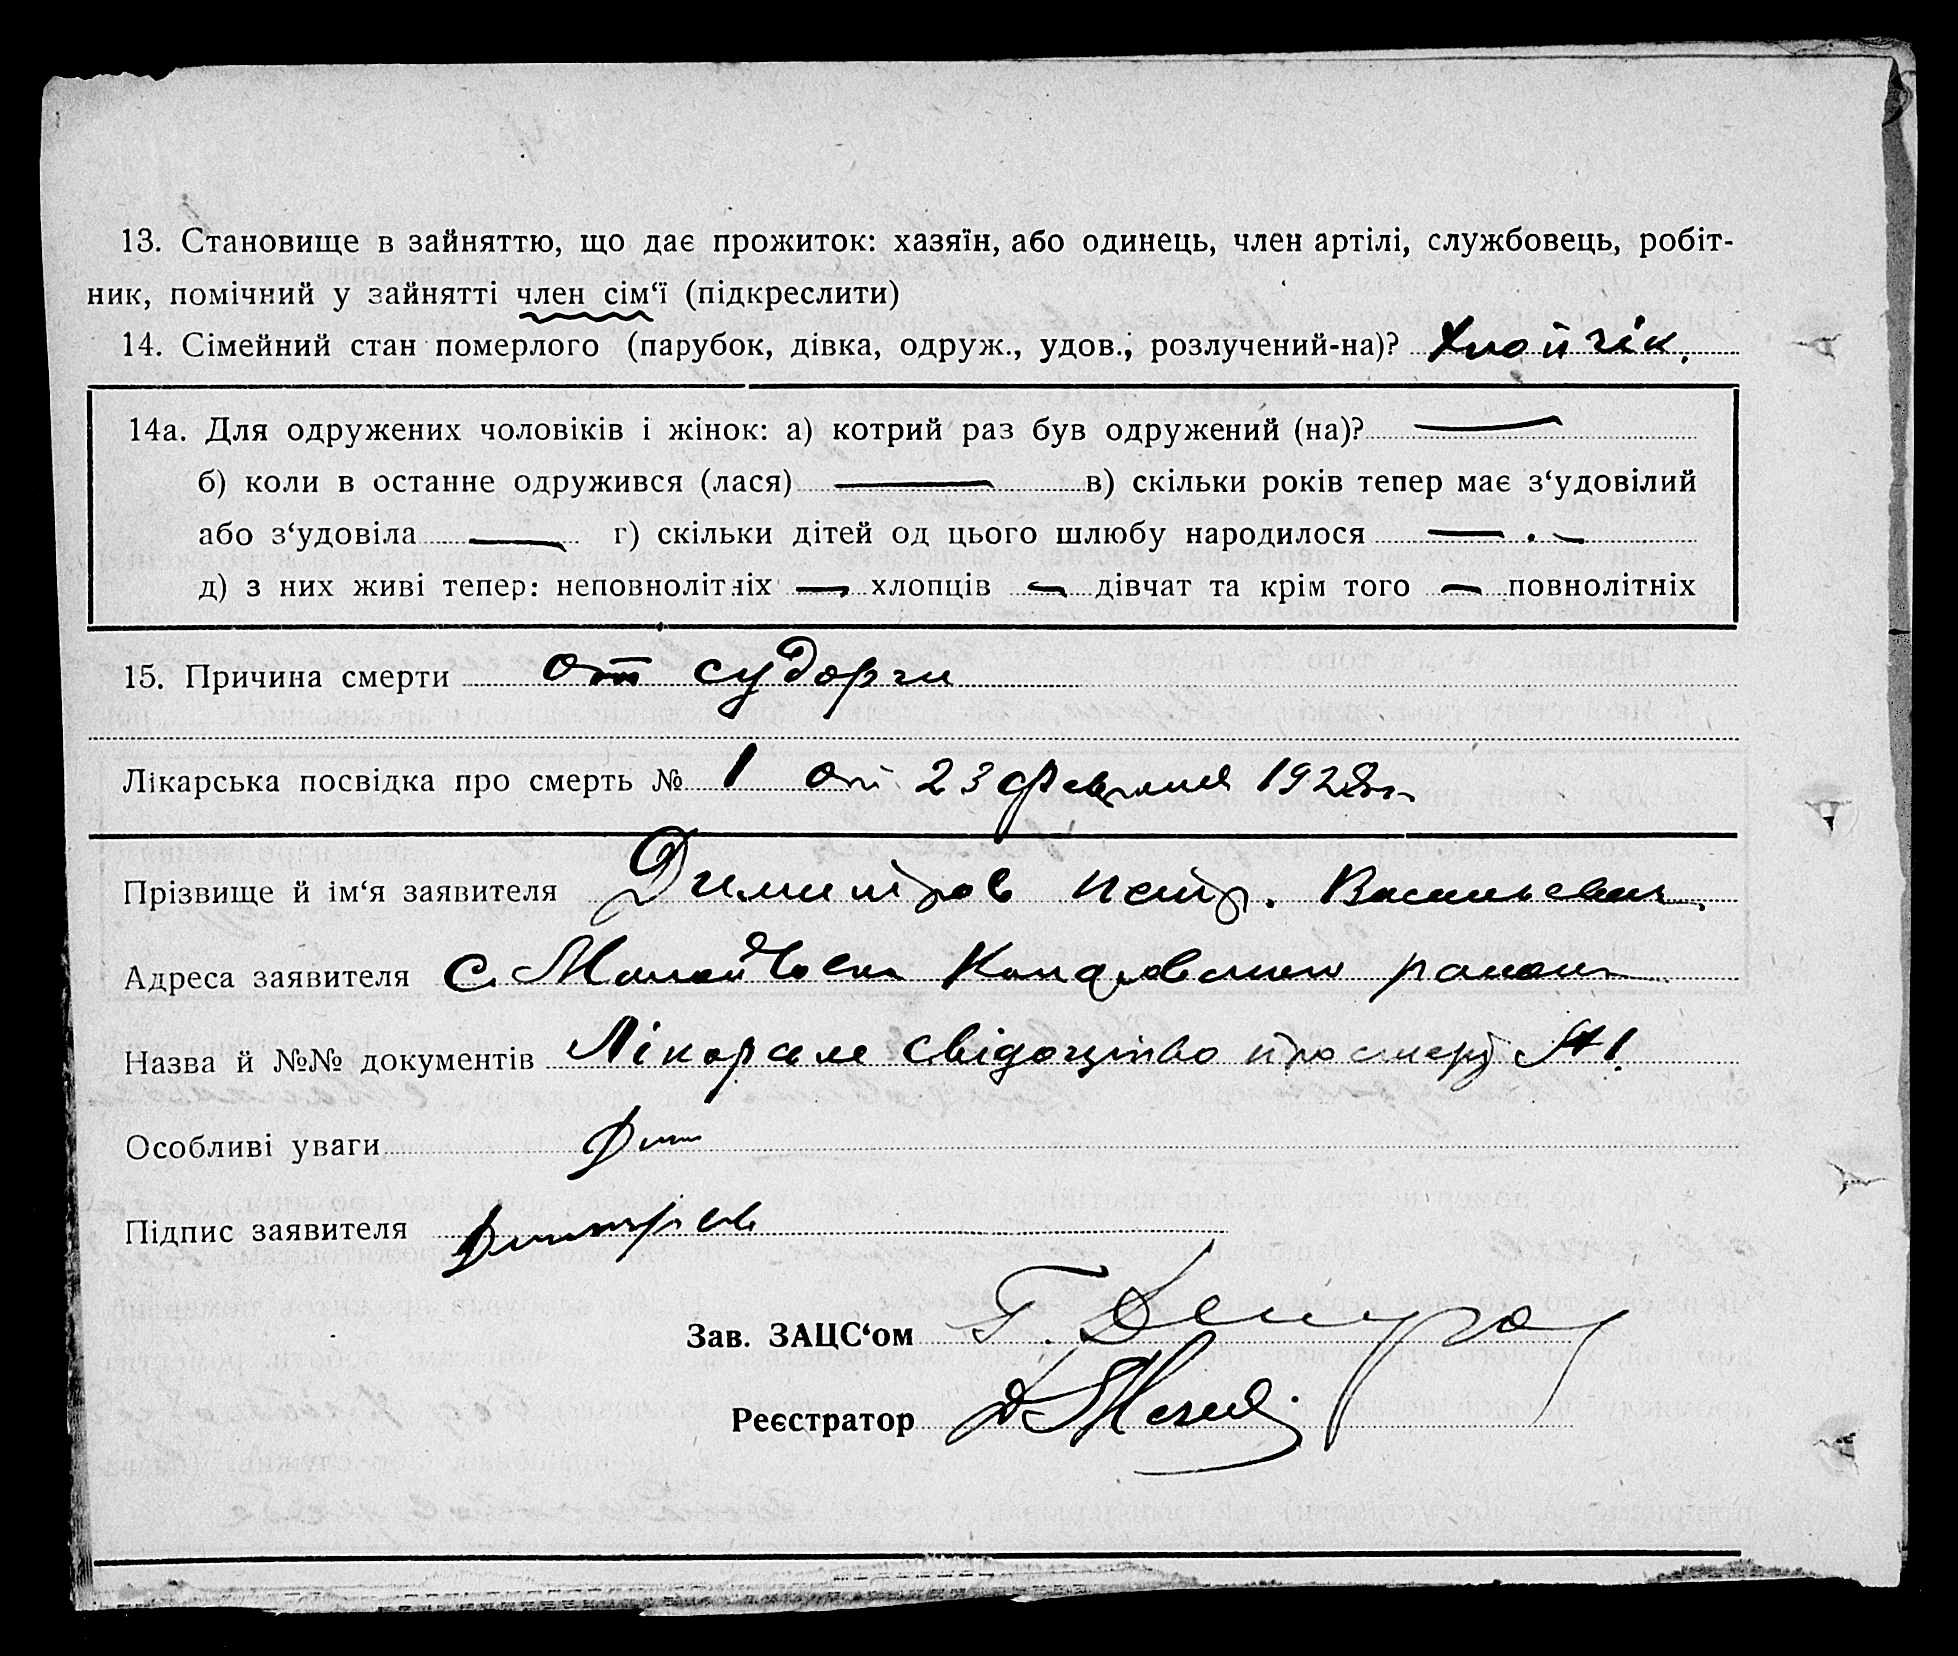 13. Становище в зайняттю, що дає прожиток: хазяїн, або одинець, член артілі, службовець, робіт-
ник, помічний у зайнятті член сім‘ї (підкреслити)
14. Сімейний стан померлого (парубок, дівка, одруж., удов., розлучений-на)? Хлопчік.
14а. Для одружених чоловіків і жінок: а) котрий раз був одружений (на)? —
б) коли в останне одружився (лася) — в) скільки років тепер має з‘удовілий
або з‘удовіла — г) скільки дітей од цього шлюбу народилося —
д) з них живі тепер: неповнолітніх — хлопців — дівчат та крім того — повнолітніх
15. Причина смерти от судорги
Лікарська посвідка про смерть № 1 от 23 февраля 1928 г.
Прізвище й ім‘я заявителя Димитров Петр. Васильевич.
Адреса заявителя с. района
Назва й №№ документів Лікарске свідоцтво про смерт №1.
Особливі уваги
Підпис заявителя Димитров
Зав. ЗАЦС‘ом Г.
Реєстратор